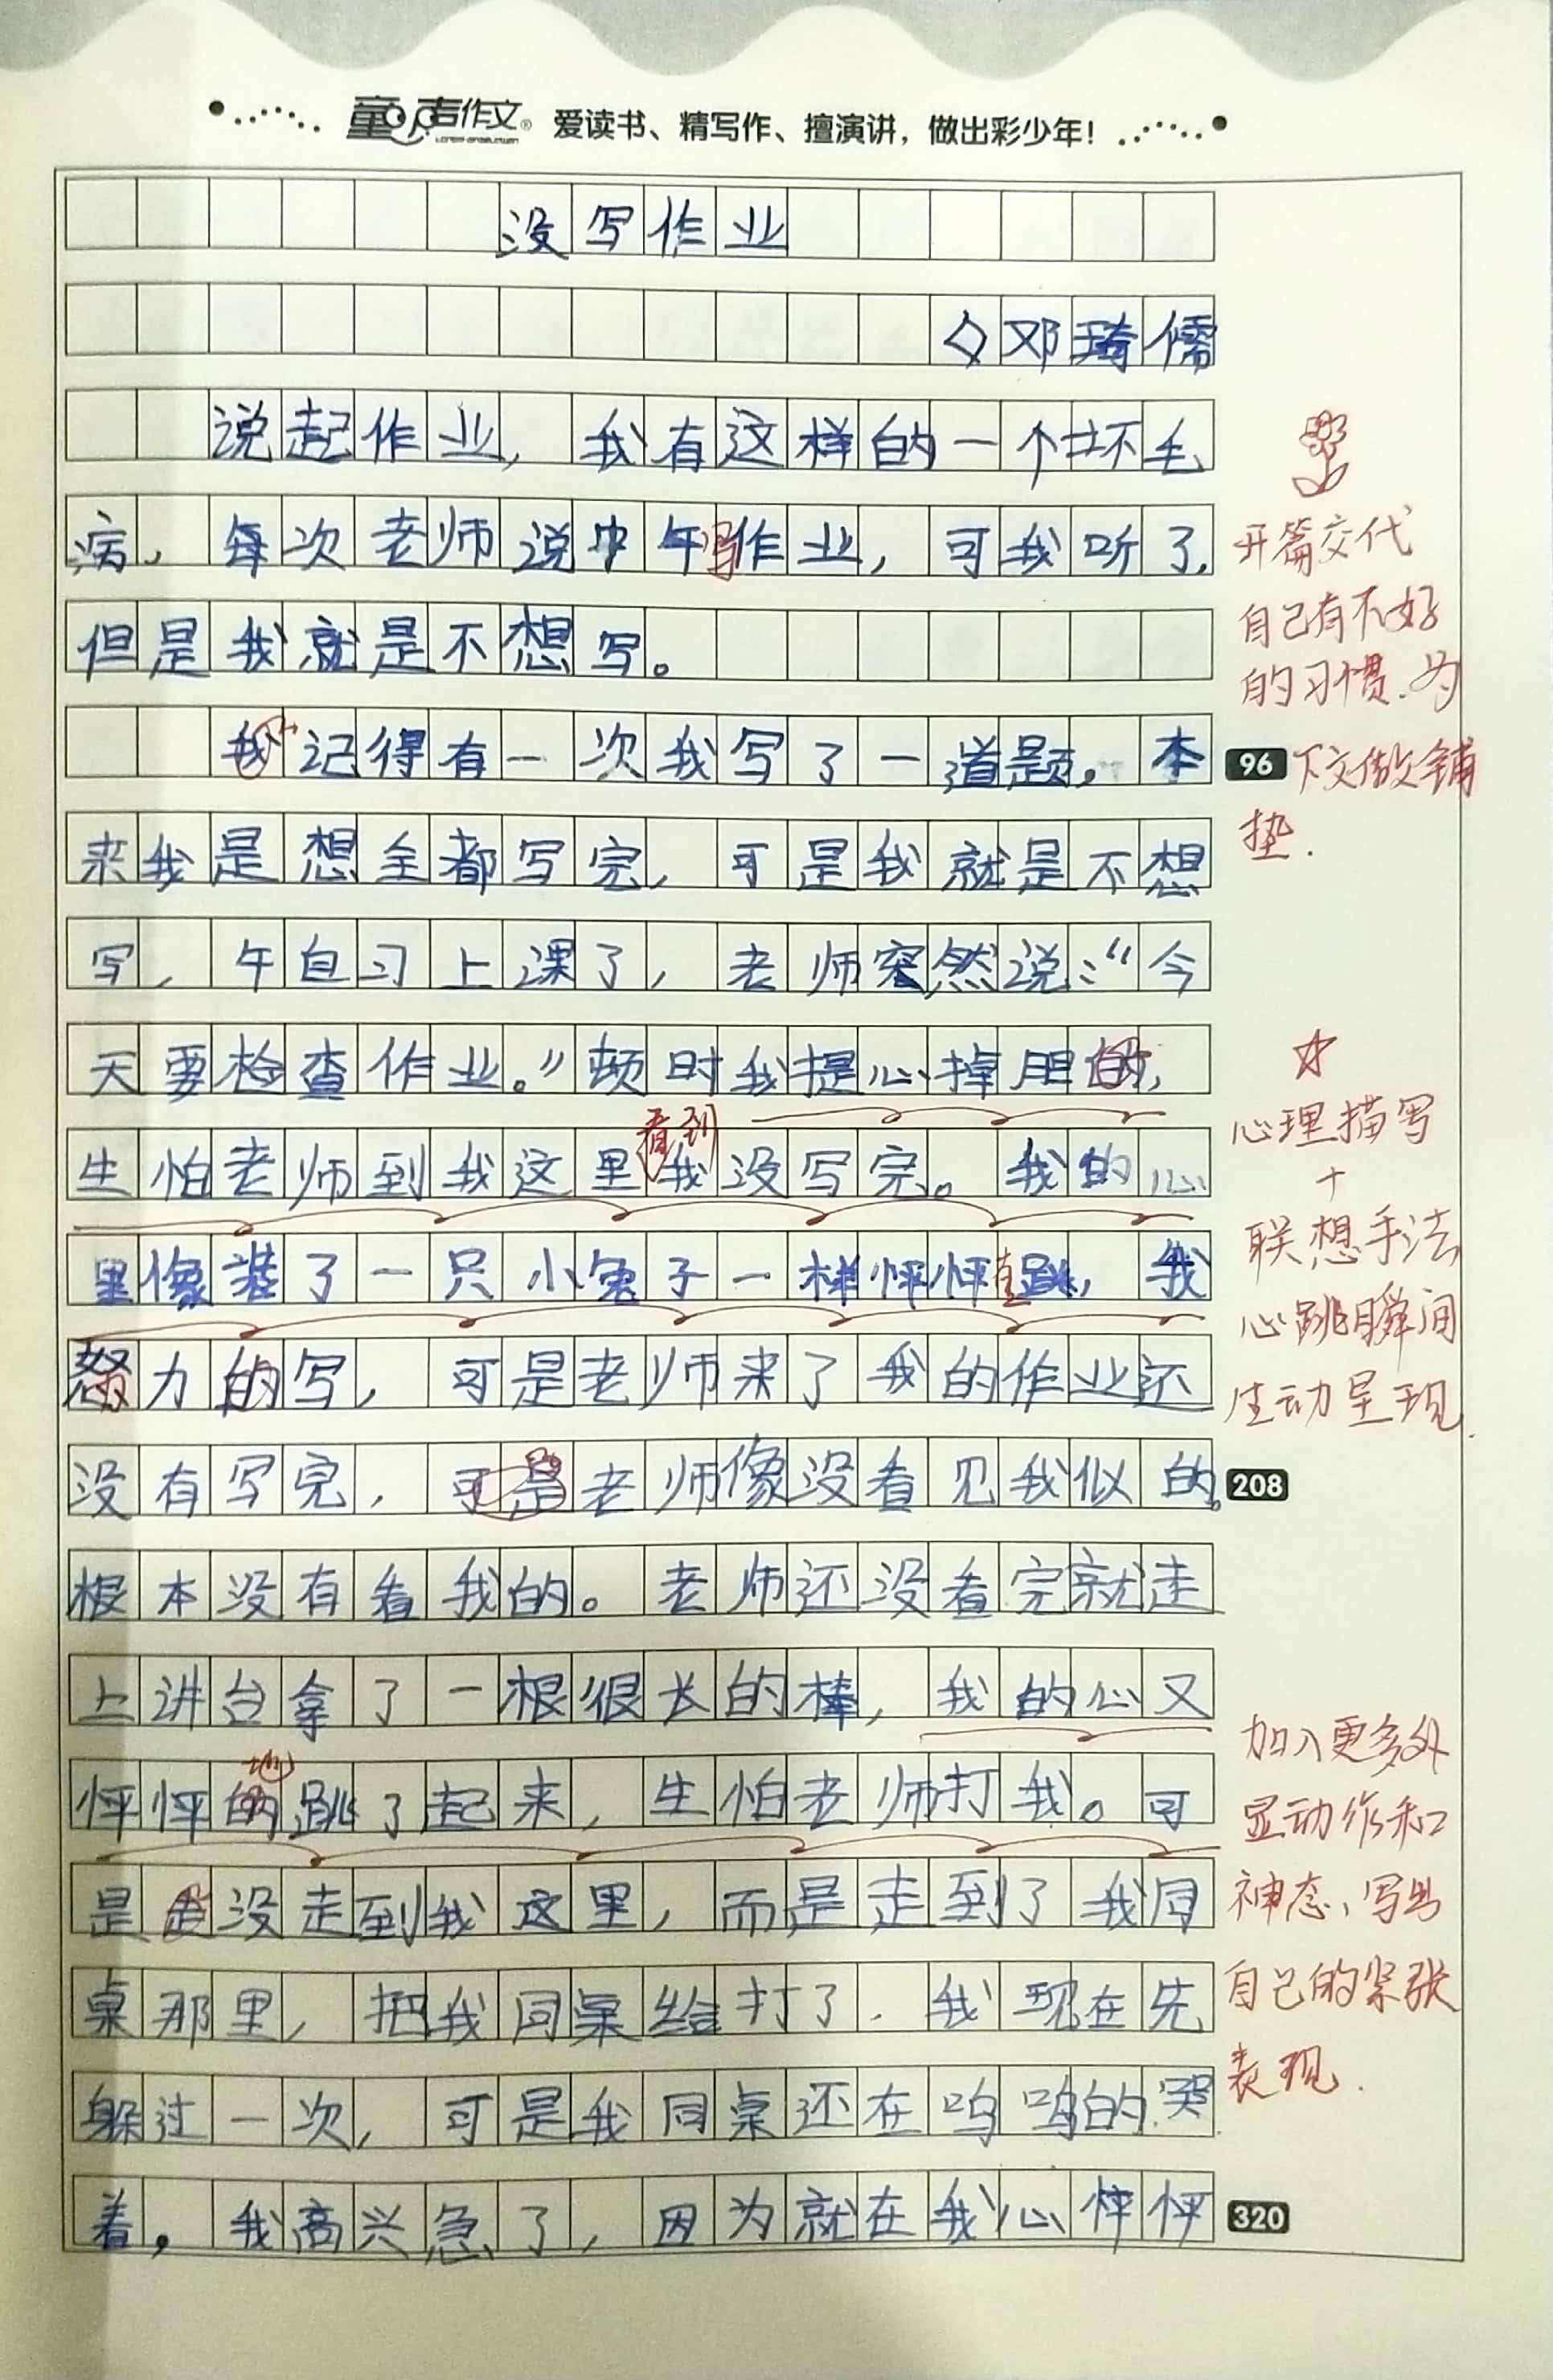 童声作文® 爱读书、精写作、擅演讲，做出彩少年！
没写作业
邓琦儒
说起作业，我有这样的一个坏毛
开篇交代
病，每次老师说中午写作业，可我听了，
自己有不好
但是我就是不想写。
的习惯.为
我记得有一次我写了一道题，本
96 下文做铺
垫.
来我是想全都写完，可是我就是不想
写，午自习上课了，老师突然说：“今
天要检查作业。”顿时我提心掉胆的，
看到
心理描写
生怕老师到我这里我没写完。我的心
+
联想手法
里像装了一只小兔子一样怦怦直跳，我
心跳瞬间
努力的写，可是老师来了我的作业还
生动呈现.
没有写完，可是老师像没看见我似的。
208
根本没有看我的。老师还没看完就走
上讲台拿了一根很长的棒，我的心又
加入更多外
地
怦怦的跳了起来，生怕老师打我。可
显动作和
是走没走到我这里，而是走到了我同
神态、写出
桌那里，把我同桌给打了.我现在先
自己的紧张
躲过一次，可是我同桌还在呜呜的哭
表现.
着，我高兴急了，因为就在我心怦怦
320